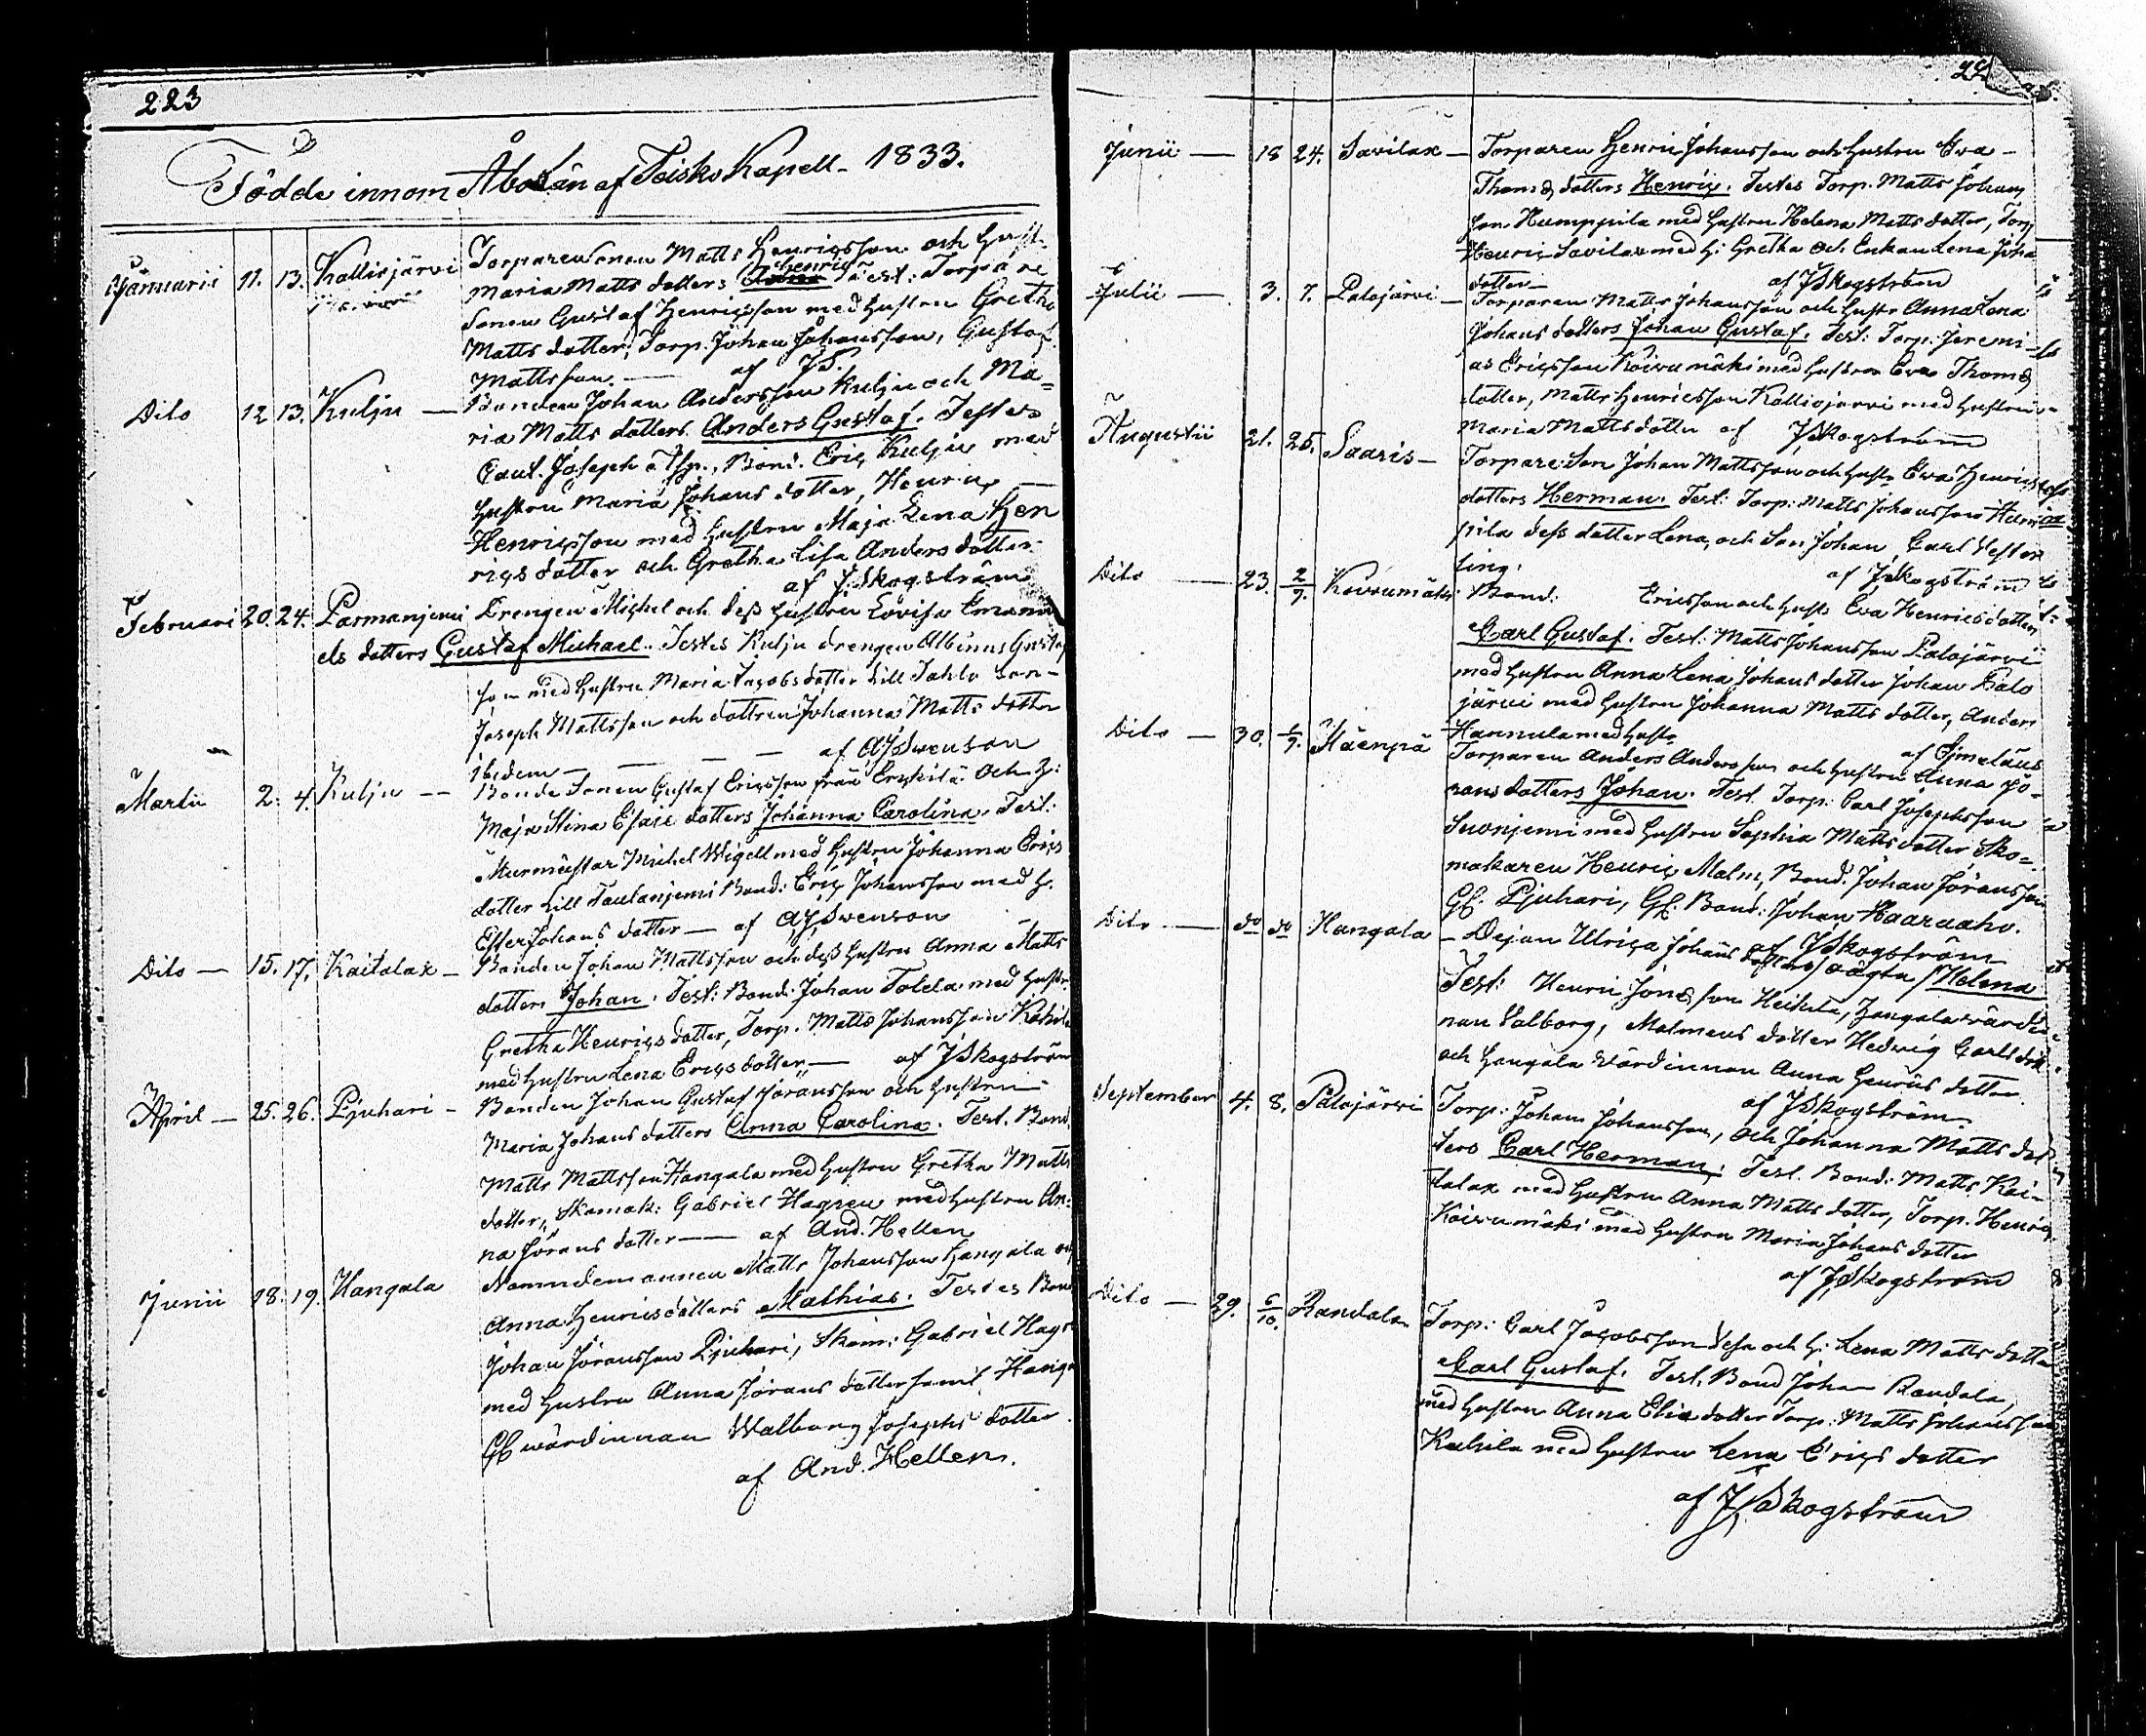 223
Födde innom Åbo Län af Teisko Kapell - 1833.
Januarii 11. 13. Kalliojärvi Torpare Sonen Matts Henricsson och Hust.
Maria Matts dotters Henric Test: Torpare
Sonen Gustaf Henricsson med Hustru Gretha
Matts dotter, Torp. Johan Johansson, Gustaf
Mattsson. — af JS.
Dito 12 13. Kulju — Bonden Johan Andersson Kulju och Ma-
ria Matts dotters Anders Gustaf. Testes
Joseph Bond. Eric Kulju med
Hustru Maria Johans dotter, Henric —
Henricsson med Hustru Maja Lena Hen
rics dotter och Gretha Lisa Anders dotter
af J Skogström
Februari 20. 24. Parmanjemi Drengen Michel och dess Hustru Lovisa Emanu
els dotters Gustaf Michael. Testes Kulju drengen Albinus Gustaf
son med Hustru Maria Jacobs dotter Lill Tahlo Son-
Joseph Mattsson och dottren Johanna Matts dotter
ibidem — — — — af AJ Swenson
Martii 2. 4. Kulju — Bonde Sonen Gustaf Ericsson från Erkkilä och H:
Maja Stina Esaie dotters Johanna Carolina. Test:
Murmästar Michel Wigell med Hustru Johanna Erics
dotter Lill Taulanjemi Bond: Eric Johansson med H.
Ester Johans dotter — af AJ Swenson
Dito — 15. 17. Kaitalax — Bonden Johan Mattsson och dess Hustru Anna Matts
dotters Johan. Test: Bond: Johan Tolela med Hustr.
Gretha Henrics dotter, Torp. Matts Johansson Kahila
med Hustru Lena Erics dotter — af J Skogström
April — 25. 26. Pjuhari — Bonden Johan Gustaf Jöransson och Hustru
Maria Johans dotters Anna Carolina. Test. Bond.
Matts Mattsson Hangala med Hustru Gretha Matts
dotter, Skomak: Gabriel Hagren med Hustru An-
na Jörans dotter — af And. Hellen
Junii 18. 19. Hangala Nämndemannen Matts Johansson Hangala och
Anna Henrics dotters Mathias. Testes Bond
Johan Jöransson Pjuhari, Skom: Gabriel Hagr
med Hustru Anna Jörans dotter samt Hanga
Gl. wärdinnan Walborg Josephs dotter
af And. Hellen.
Junii — 18 24. Savilax — Torparen Henric Johansson och Hustru Eva —
Thomæ dotters Henric. Testes Torp. Matts Johans
son Humppila med Hustru Helena Matts dotter, Torp
Henric Savilax med H: Gretha och Enkan Lena Joha
dotter — af J Skogström
Julii — 3. 7. Palojärvi — Torparen Matts Johansson och Hustr. Anna Lena
Johans dotters Johan Gustaf. Test: Torp: Jeremi-
as Ericsson Koivumäki med Hustru Eva Thomæ
dotter, Matts Henricsson Kalliojärvi med Hustru
Maria Matts dotter af J Skogström
Augustii 21. 25. Saaris — Torpare Son Johan Mattsson och Hustr. Eva Henrics
dotters Herman. Test: Torp: Matts Johansson Hum
pila dess dotter Lena, och Son Johan, Carl Vester
ling. af J Skogström
Dito — 23. 2/9. Koivumäki Bond: Ericsson och Hustr. Eva Henrics dotters
Carl Gustaf. Test: Matts Johansson Palojärvi
med Hustru Anna Lena Johans dotter Johan Palo
järvi med Hustru Johanna Matts dotter, Anders
Hannula med Hustr. af Simelius
Dito — 30. 1/9. Häenpä Torparen Anders Andersson och Hustru Anna Jö-
rans dotters Johan. Test. Torp: Carl Josephsson
Suonjemi med Hustru Sophia Matts dotter, Sko-
makaren Henric Malm, Bond. Johan Jöransson
Gl. Pjuhari, Gl. Bond: Johan Haaraaho.
af J Skogström
Dito — do do Hangala — Dejan Ulrica Johans dotters oägta Helena
Test: Henric Jonæ son Heikila, Hangala värdin
nan Valborg, Malmens dotter Hedwig Carls dott.
och Hangala Värdinnan Anna Henrics dotter.
af J Skogström.
September 4. 8. Palojärvi Torp: Johan Johansson, och Johanna Matts dot
ters Carl Herman. Test. Bond: Matts Kai-
talax med Hustru Anna Matts dotter, Torp. Henric
Koivumäki med Hustru Maria Johans dotter
af J Skogström
Dito — 29. 6/10. Randala Torp: Carl Jacobsson Vesa och H: Lena Matts dotters
Carl Gustaf. Test. Bond Johan Randala,
med Hustru Anna Eliæ dotter Torp: Matts Johansson
Kahila med Hustru Lena Erics dotter
af J Skogström